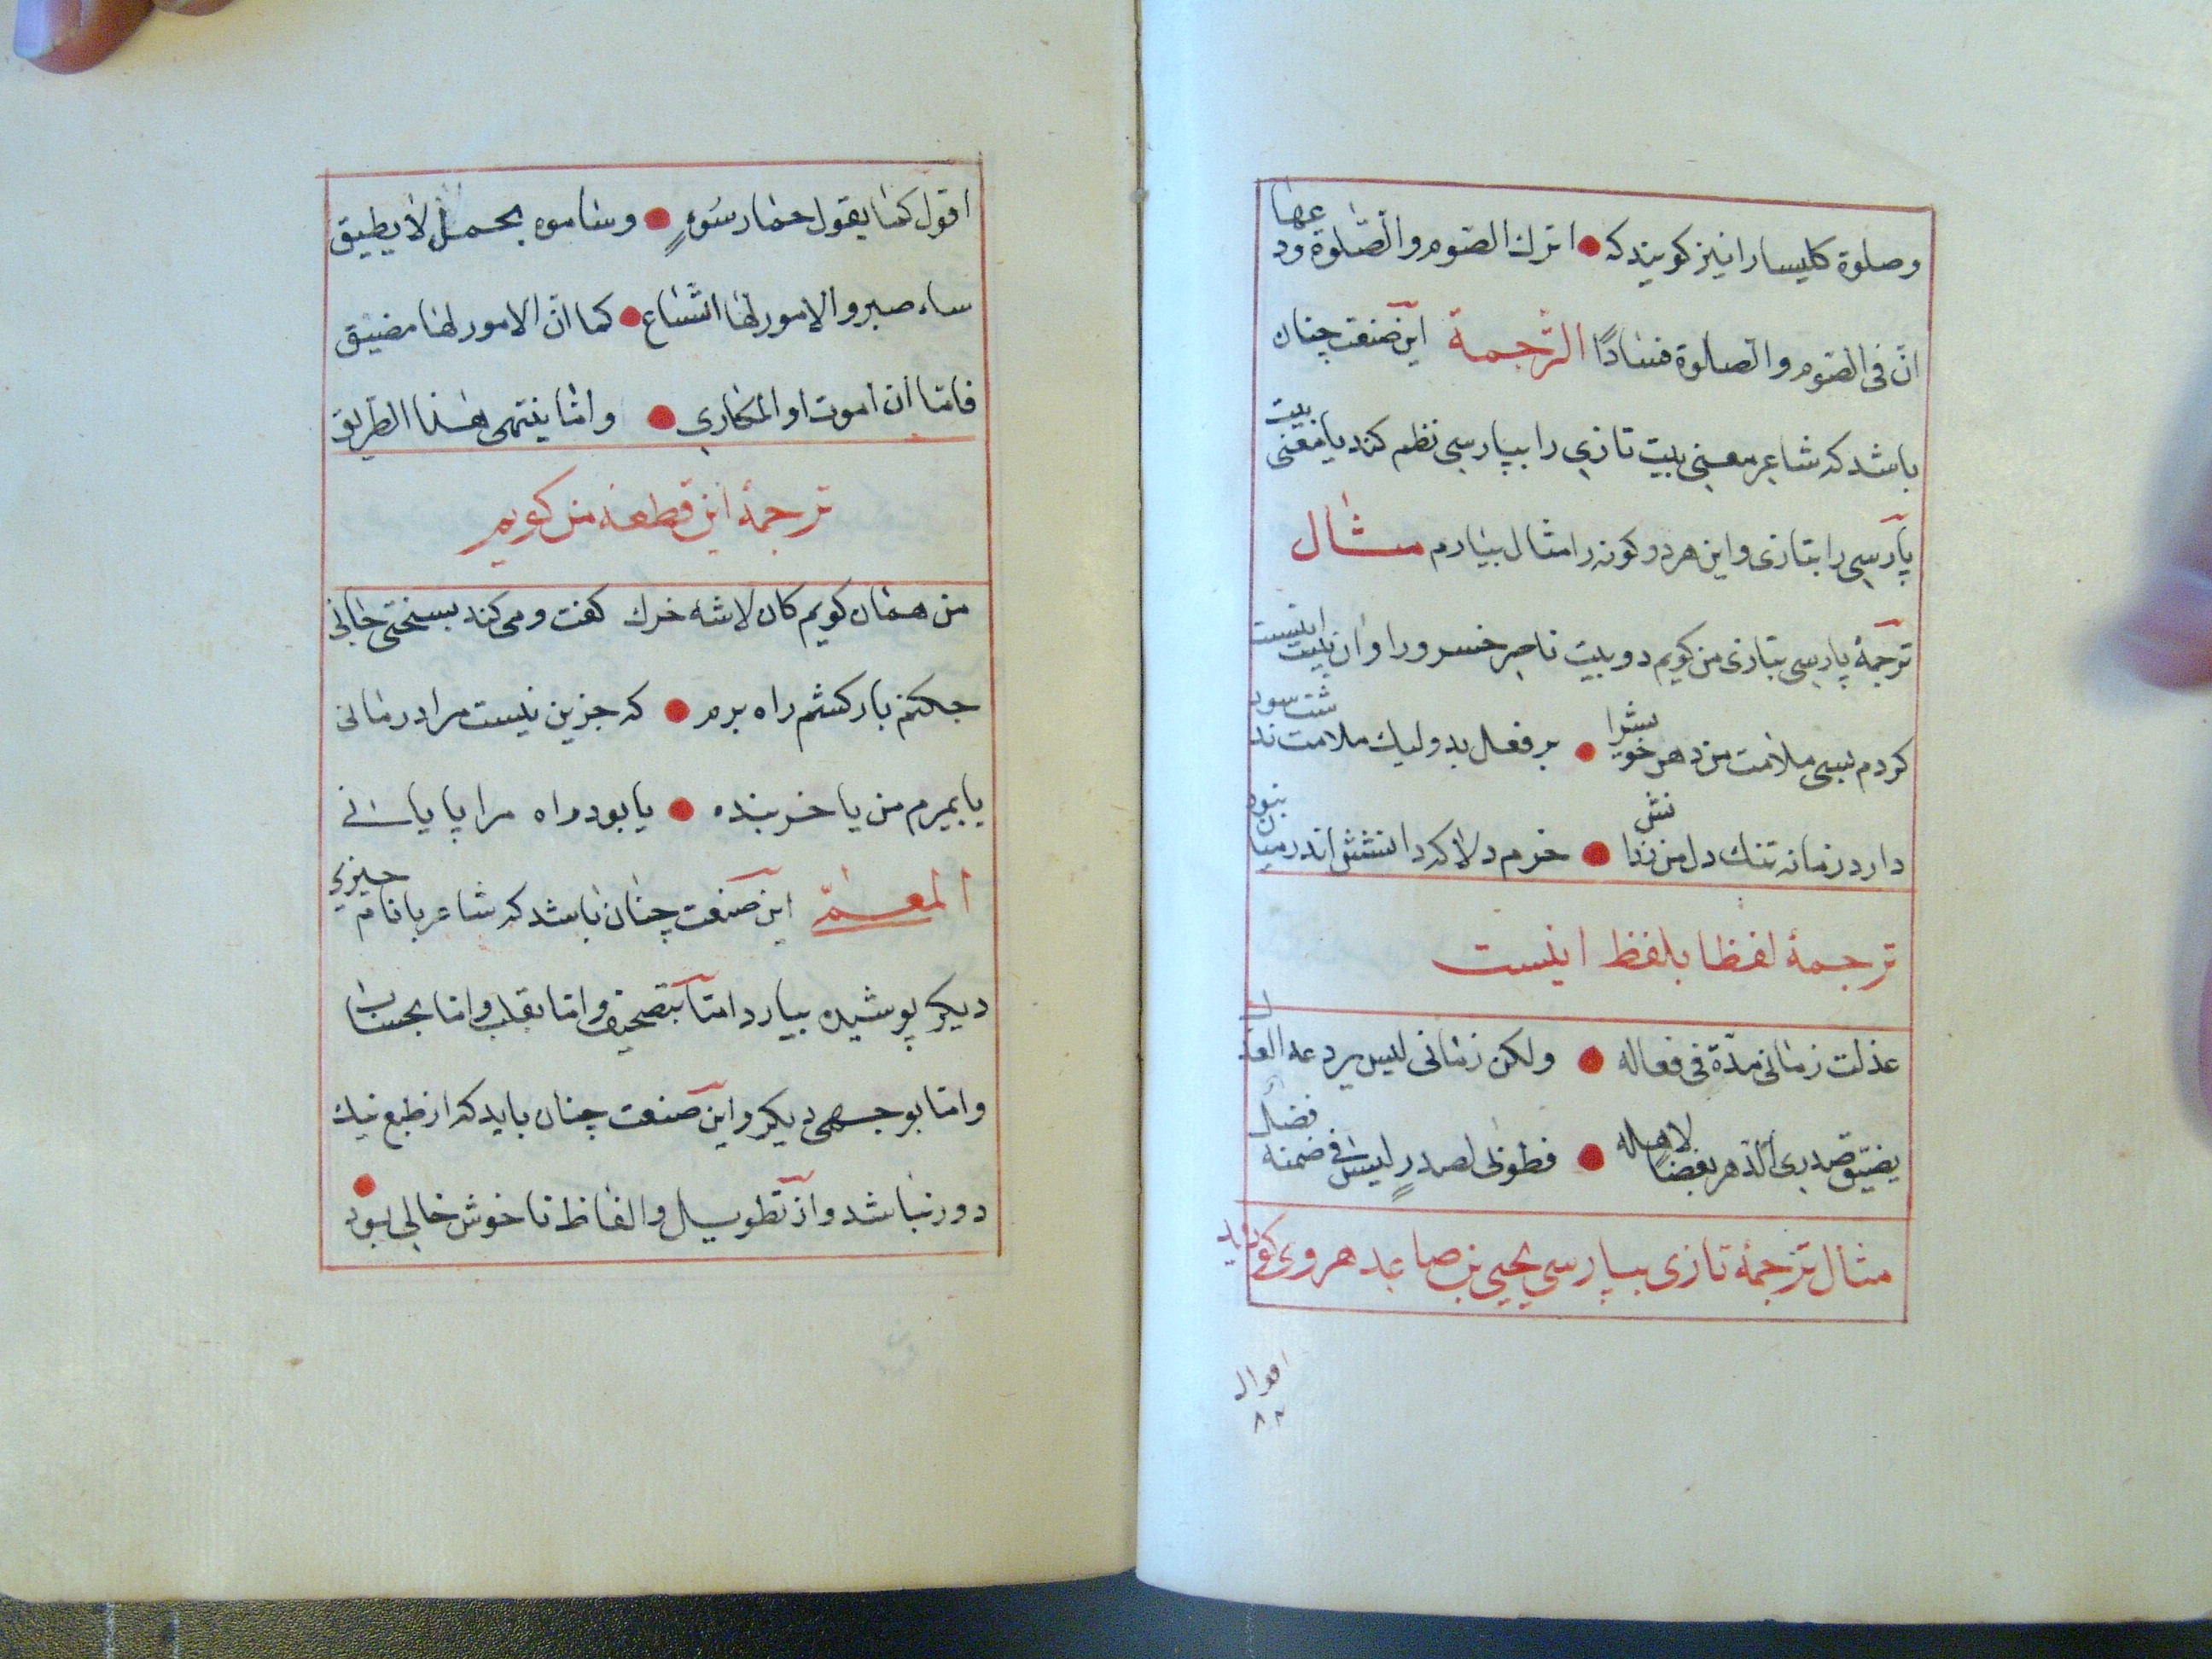 وصلوة كليسا را نيز كويند كه ● اترك الصّوم والصّلوة ودعها
انّ فى الصّوم والصّلوة فسادًا الترجمة اين صنعت چنان
باشد كه شاعر معنى بيت تازى را بپارسى نظم كند يا معنى بيت
پارسى را بتازى واين هر دو كونه را مثال بيارم مثال
ترجمۀ پارسى بتازى من كويم دو بيت ناصر خسرو را وان بيت اينست
كردم بسى ملامت من دهر خويشرا ● بر فعل بد وليك ملامت نداشت سود
دارد زمانه تنك دل من زدانش ● خرم دلا كه دانشش اندر ميان نبود
ترجمۀ لفظا بلفظ اينست
عذلت زمانى مدّة فى فعاله ● ولكن زمانى ليس يردعه العذل
يضيّق صدرى الدّهر بغضًا لاهله ● فطوبى لصدرٍ ليس فى ضمنه فضلُ
مثال ترجمۀ تازى بپارسى يحيى بن صاعد هروى كويد
اقول
۸۲
اقول كما يقول حمار سَوءٍ ● وساموه بحمل لا يطيق
ساء صبر والامور لها اتّساع ● كما انّ الامور لها مضيق
فامّا ان اموت او المكارى ● وامّا ينتهى هذا الطّريق
ترجمۀ اين قطعه من كويم
من همان كويم كان لاشه خرك كفت ومى كند بسختى جانى
چكنم بار كشم راه برم ● كه جزين نيست مرا درمانى
يا بميرم من يا خربنده ● يا بود راه مرا پايانى
المعمّى اين صنعت چنان باشد كه شاعر يا نام چيزى
ديكر پوشيده بيارد امّا بتصحيف وامّا بقلب وامّا بحساب
وامّا بوجهى ديكر واين صنعت چنان بايد كه از طبع نيك
دور نباشد واز تطويل والفاظ ناخوش خالى بود ●